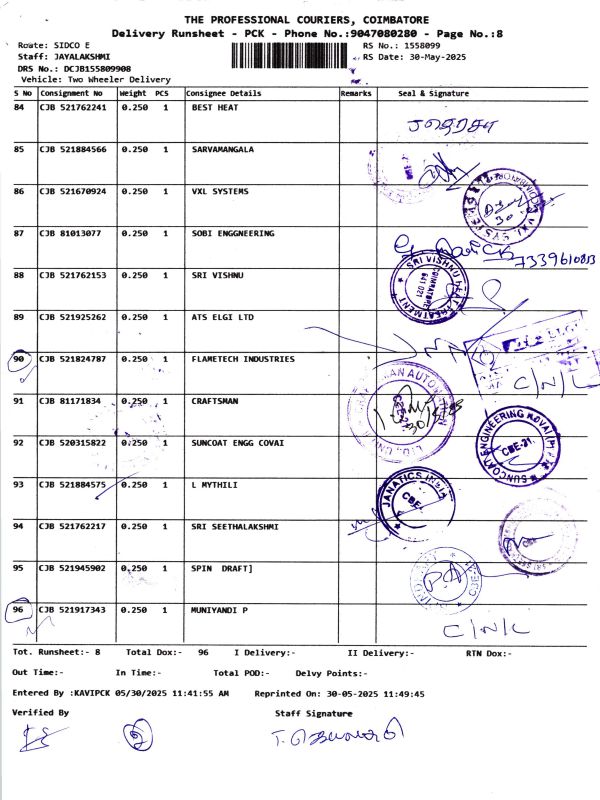 THE PROFESSIONAL COURIERS, COIMBATORE
Delivery Runsheet - PCK - Phone No.:9047080280 - Page No.:8
Route: SIDCO E RS No.: 1558099
Staff: JAYALAKSHMI RS Date: 30-May-2025
DRS No.: DCJB155809908
Vehicle: Two Wheeler Delivery
S No Consignment No Weight PCS Consignee Details Remarks Seal & Signature
84 CJB 521762241 0.250 1 BEST HEAT
85 CJB 521884566 0.250 1 SARVAMANGALA
86 CJB 521670924 0.250 1 VXL SYSTEMS
87 CJB 81013077 0.250 1 SOBI ENGGNEERING
7339610813
88 CJB 521762153 0.250 1 SRI VISHNU
SRI VISHNU HEAT TREATMENT
COIMBATORE
641 021
89 CJB 521925262 0.250 1 ATS ELGI LTD
90 CJB 521824787 0.250 1 FLAMETECH INDUSTRIES
C/N/L
91 CJB 81171834 0.250 1 CRAFTSMAN
92 CJB 520315822 0.250 1 SUNCOAT ENGG COVAI
SUNCOAT ENGINEERING KOVAI (P)
CBE-21.
93 CJB 521884575 0.250 1 L MYTHILI
JANATICS INDIA
CBE-
94 CJB 521762217 0.250 1 SRI SEETHALAKSHMI
95 CJB 521945902 0.250 1 SPIN DRAFT]
96 CJB 521917343 0.250 1 MUNIYANDI P
C/N/L
Tot. Runsheet:- 8 Total Dox:- 96 I Delivery:- II Delivery:- RTN Dox:-
Out Time:- In Time:- Total POD:- Delvy Points:-
Entered By :KAVIPCK 05/30/2025 11:41:55 AM Reprinted On: 30-05-2025 11:49:45
Verified By Staff Signature